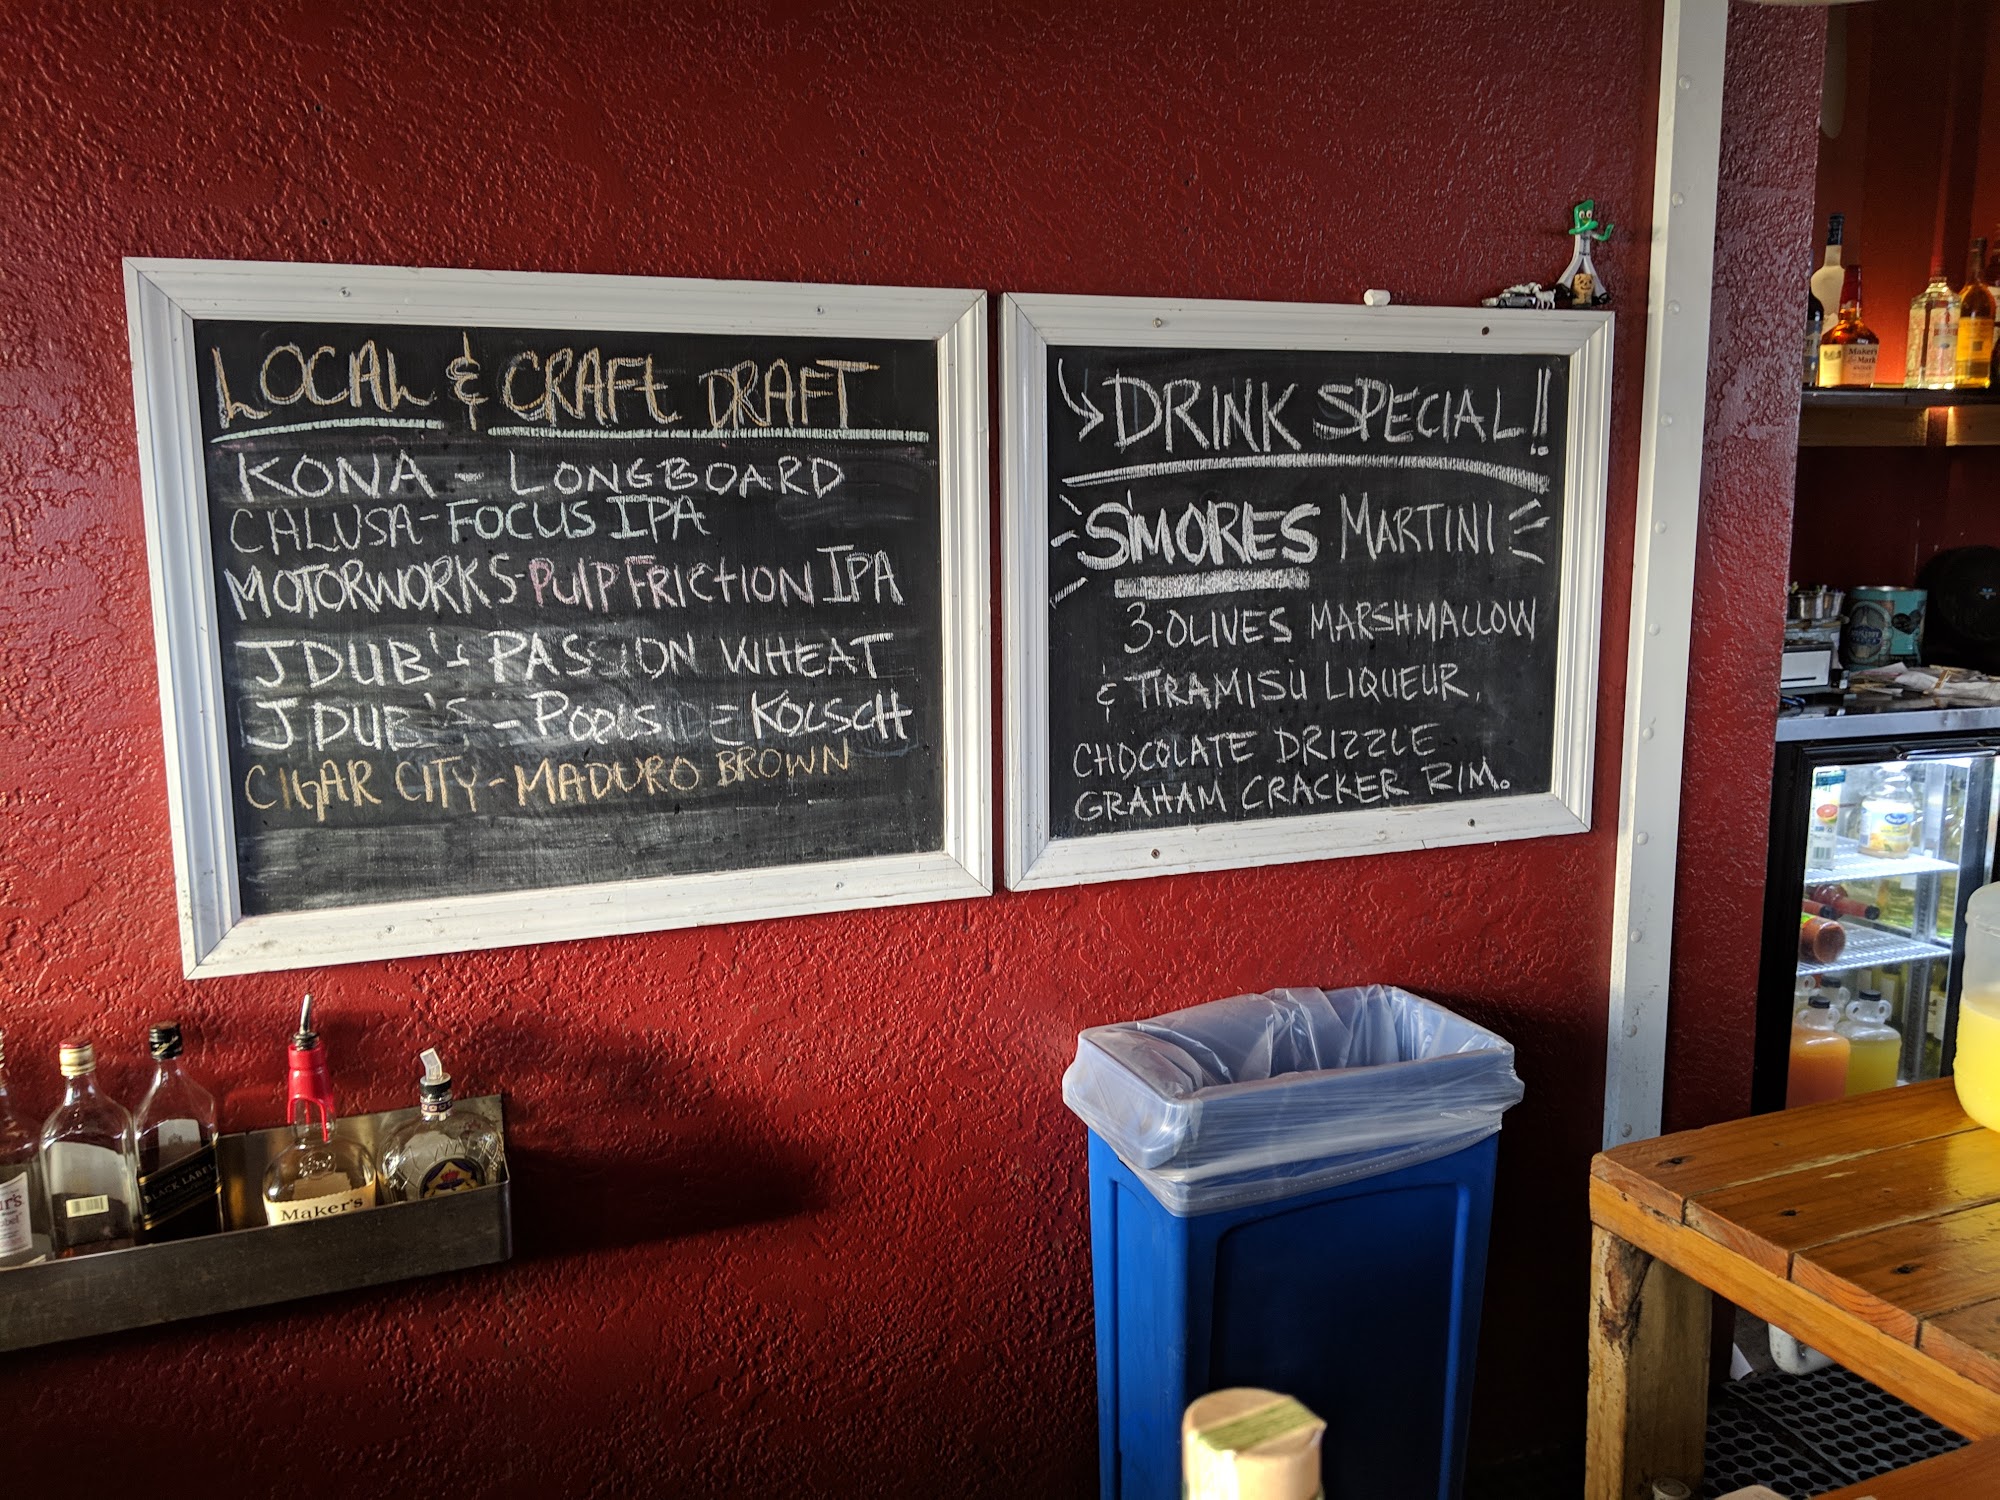 LOCAL & CRAFT DRAFT
KONA - LONGBOARD
CALUSA - FOCUS IPA
MOTORWORKS - PULP FRICTION IPA
JDUB'S - PASSION WHEAT
JDUB'S - POOLSIDE KOLSCH
CIGAR CITY - MADURO BROWN
DRINK SPECIAL!!
S'MORES MARTINI
3-OLIVES MARSHMALLOW
& TIRAMISU LIQUEUR,
CHOCOLATE DRIZZLE
GRAHAM CRACKER RIM.
BLACK LABEL
Maker's
Maker's
Mark